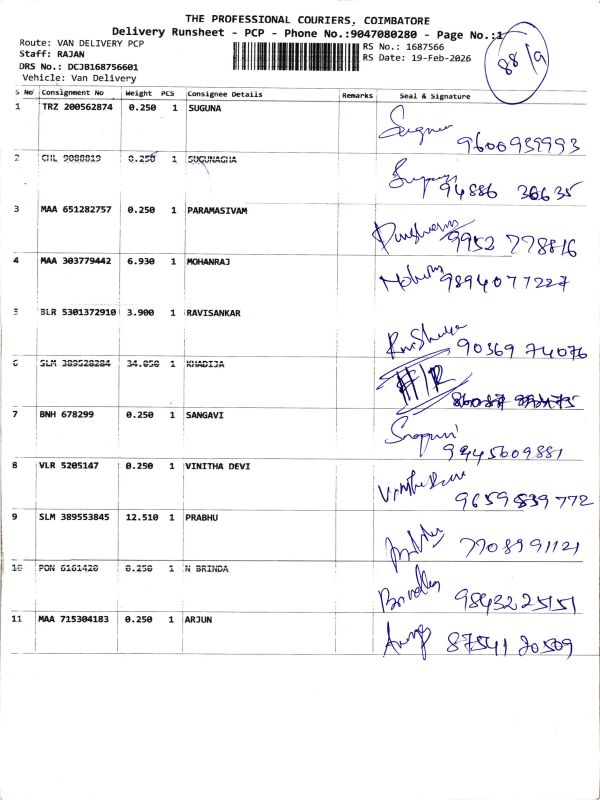 THE PROFESSIONAL COURIERS, COIMBATORE
Delivery Runsheet - PCP - Phone No.:9047080280 - Page No.:1
Route: VAN DELIVERY PCP
Staff: RAJAN
DRS No.: DCJB168756601
Vehicle: Van Delivery
RS No.: 1687566
RS Date: 19-Feb-2026
88/9
S No Consignment No Weight PCS Consignee Details Remarks Seal & Signature
1 TRZ 200562874 0.250 1 SUGUNA
9600959993
2 CHL 9088819 0.250 1 SUGUNAGHA
94886 30635
3 MAA 651282757 0.250 1 PARAMASIVAM
9952 778816
4 MAA 303779442 6.930 1 MOHANRAJ
9894077227
5 BLR 5301372910 3.900 1 RAVISANKAR
90369 74076
6 SLM 389528284 34.050 1 KHADIJA
7 BNH 678299 0.250 1 SANGAVI
9945609881
8 VLR 5205147 0.250 1 VINITHA DEVI
9659839772
9 SLM 389553845 12.510 1 PRABHU
7708991121
10 PON 6161420 0.250 1 N BRINDA
9843225151
11 MAA 715304183 0.250 1 ARJUN
87541 20509